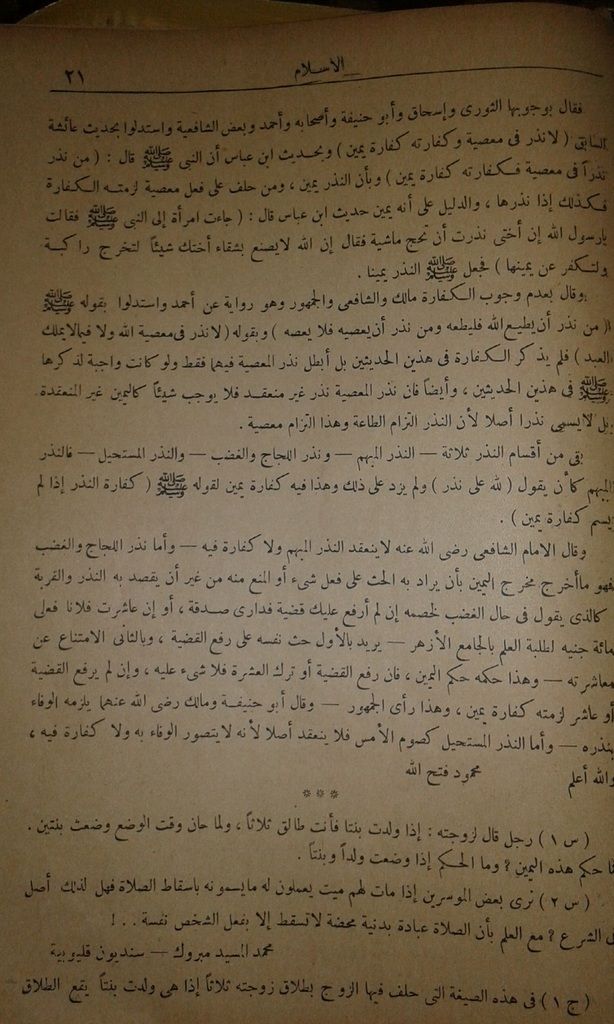 الاسلام
٢١
فقال بوجوبها الثورى وإسحاق وأبو حنيفة وأصحابه وأحمد وبعض الشافعية واستدلوا بحديث عائشة
السابق ( لا نذر فى معصية وكفارته كفارة يمين ) وبحديث ابن عباس أن النبى ﷺ قال : ( من نذر
نذراً فى معصية فكفارته كفارة يمين ) وبأن النذر يمين ، ومن حلف على فعل معصية لزمته الكفارة
فكذلك إذا نذرها ، والدليل على أنه يمين حديث ابن عباس قال : ( جاءت امرأة إلى النبى ﷺ فقالت
يارسول الله إن أختى نذرت أن تحج ماشية فقال إن الله لايصنع بشقاء أختك شيئاً لتخرج راكبة
ولتكفر عن يمينها ) فجعل ﷺ النذر يمينا .
وقال بعدم وجوب الكفارة مالك والشافعى والجمهور وهو رواية عن أحمد واستدلوا بقوله ﷺ
( من نذر أن يطيع الله فليطعه ومن نذر أن يعصيه فلا يعصه ) وبقوله ( لانذر فى معصية الله ولا فيما لايملك
العبد ) فلم يذكر الكفارة فى هذين الحديثين بل أبطل نذر المعصية فيهما فقط ولو كانت واجبة لذكرها
ﷺ فى هذين الحديثين ، وأيضاً فان نذر المعصية نذر غير منعقد فلا يوجب شيئاً كاليمين غير المنعقدة
بل لايسمى نذرا أصلا لأن النذر التزام الطاعة وهذا التزام معصية .
بقى من أقسام النذر ثلاثة — النذر المبهم — ونذر اللجاج والغضب — والنذر المستحيل — فالنذر
المبهم كأن يقول ( لله على نذر ) ولم يزد على ذلك وهذا فيه كفارة يمين لقوله ﷺ ( كفارة النذر إذا لم
يسم كفارة يمين ) .
وقال الامام الشافعى رضى الله عنه لاينعقد النذر المبهم ولا كفارة فيه — وأما نذر اللجاج والغضب
فهو ماأخرج مخرج اليمين بأن يراد به الحث على فعل شىء أو المنع منه من غير أن يقصد به النذر والقربة
كالذى يقول فى حال الغضب لخصمه إن لم أرفع عليك قضية فدارى صدقة ، أو إن عاشرت فلانا فعلى
مائة جنيه لطلبة العلم بالجامع الأزهر — يريد بالأول حث نفسه على رفع القضية ، وبالثانى الامتناع عن
معاشرته — وهذا حكمه حكم اليمين ، فان رفع القضية أو ترك العشرة فلا شىء عليه ، وإن لم يرفع القضية
أو عاشر لزمته كفارة يمين ، وهذا رأى الجمهور — وقال أبو حنيفة ومالك رضى الله عنهما يلزمه الوفاء
بنذره — وأما النذر المستحيل كصوم الأمس فلا ينعقد أصلا لأنه لايتصور الوفاء به ولا كفارة فيه ،
والله أعلم
محمود فتح الله
* * *
( س ١ ) رجل قال لزوجته : إذا ولدت بنتا فأنت طالق ثلاثاً ، ولما حان وقت الوضع وضعت بنتين .
حكم هذه اليمين ؟ وما الحكم إذا وضعت ولداً وبنتاً .
( س ٢ ) نرى بعض الموسرين إذا مات لهم ميت يعملون له مايسمونه باسقاط الصلاة فهل لذلك أصل
الشرع ؟ مع العلم بأن الصلاة عبادة بدنية محضة لاتسقط إلا بفعل الشخص نفسة . . !
محمد السيد مبروك — سنديون قليوبية
( ج ١ ) فى هذه الصيغة التى حلف فيها الزوج بطلاق زوجته ثلاثاً إذا هى ولدت بنتاً يقع الطلاق